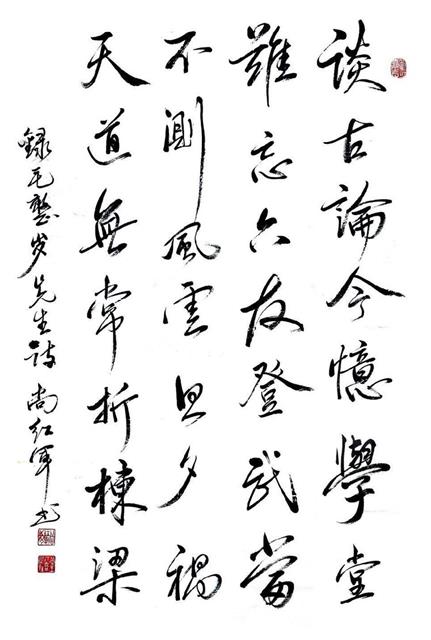 談古論今憶學堂
難忘六友登武當
不測風雲旦夕禍
天道無常折棟梁
錄毛整岁先生诗 尚红军书